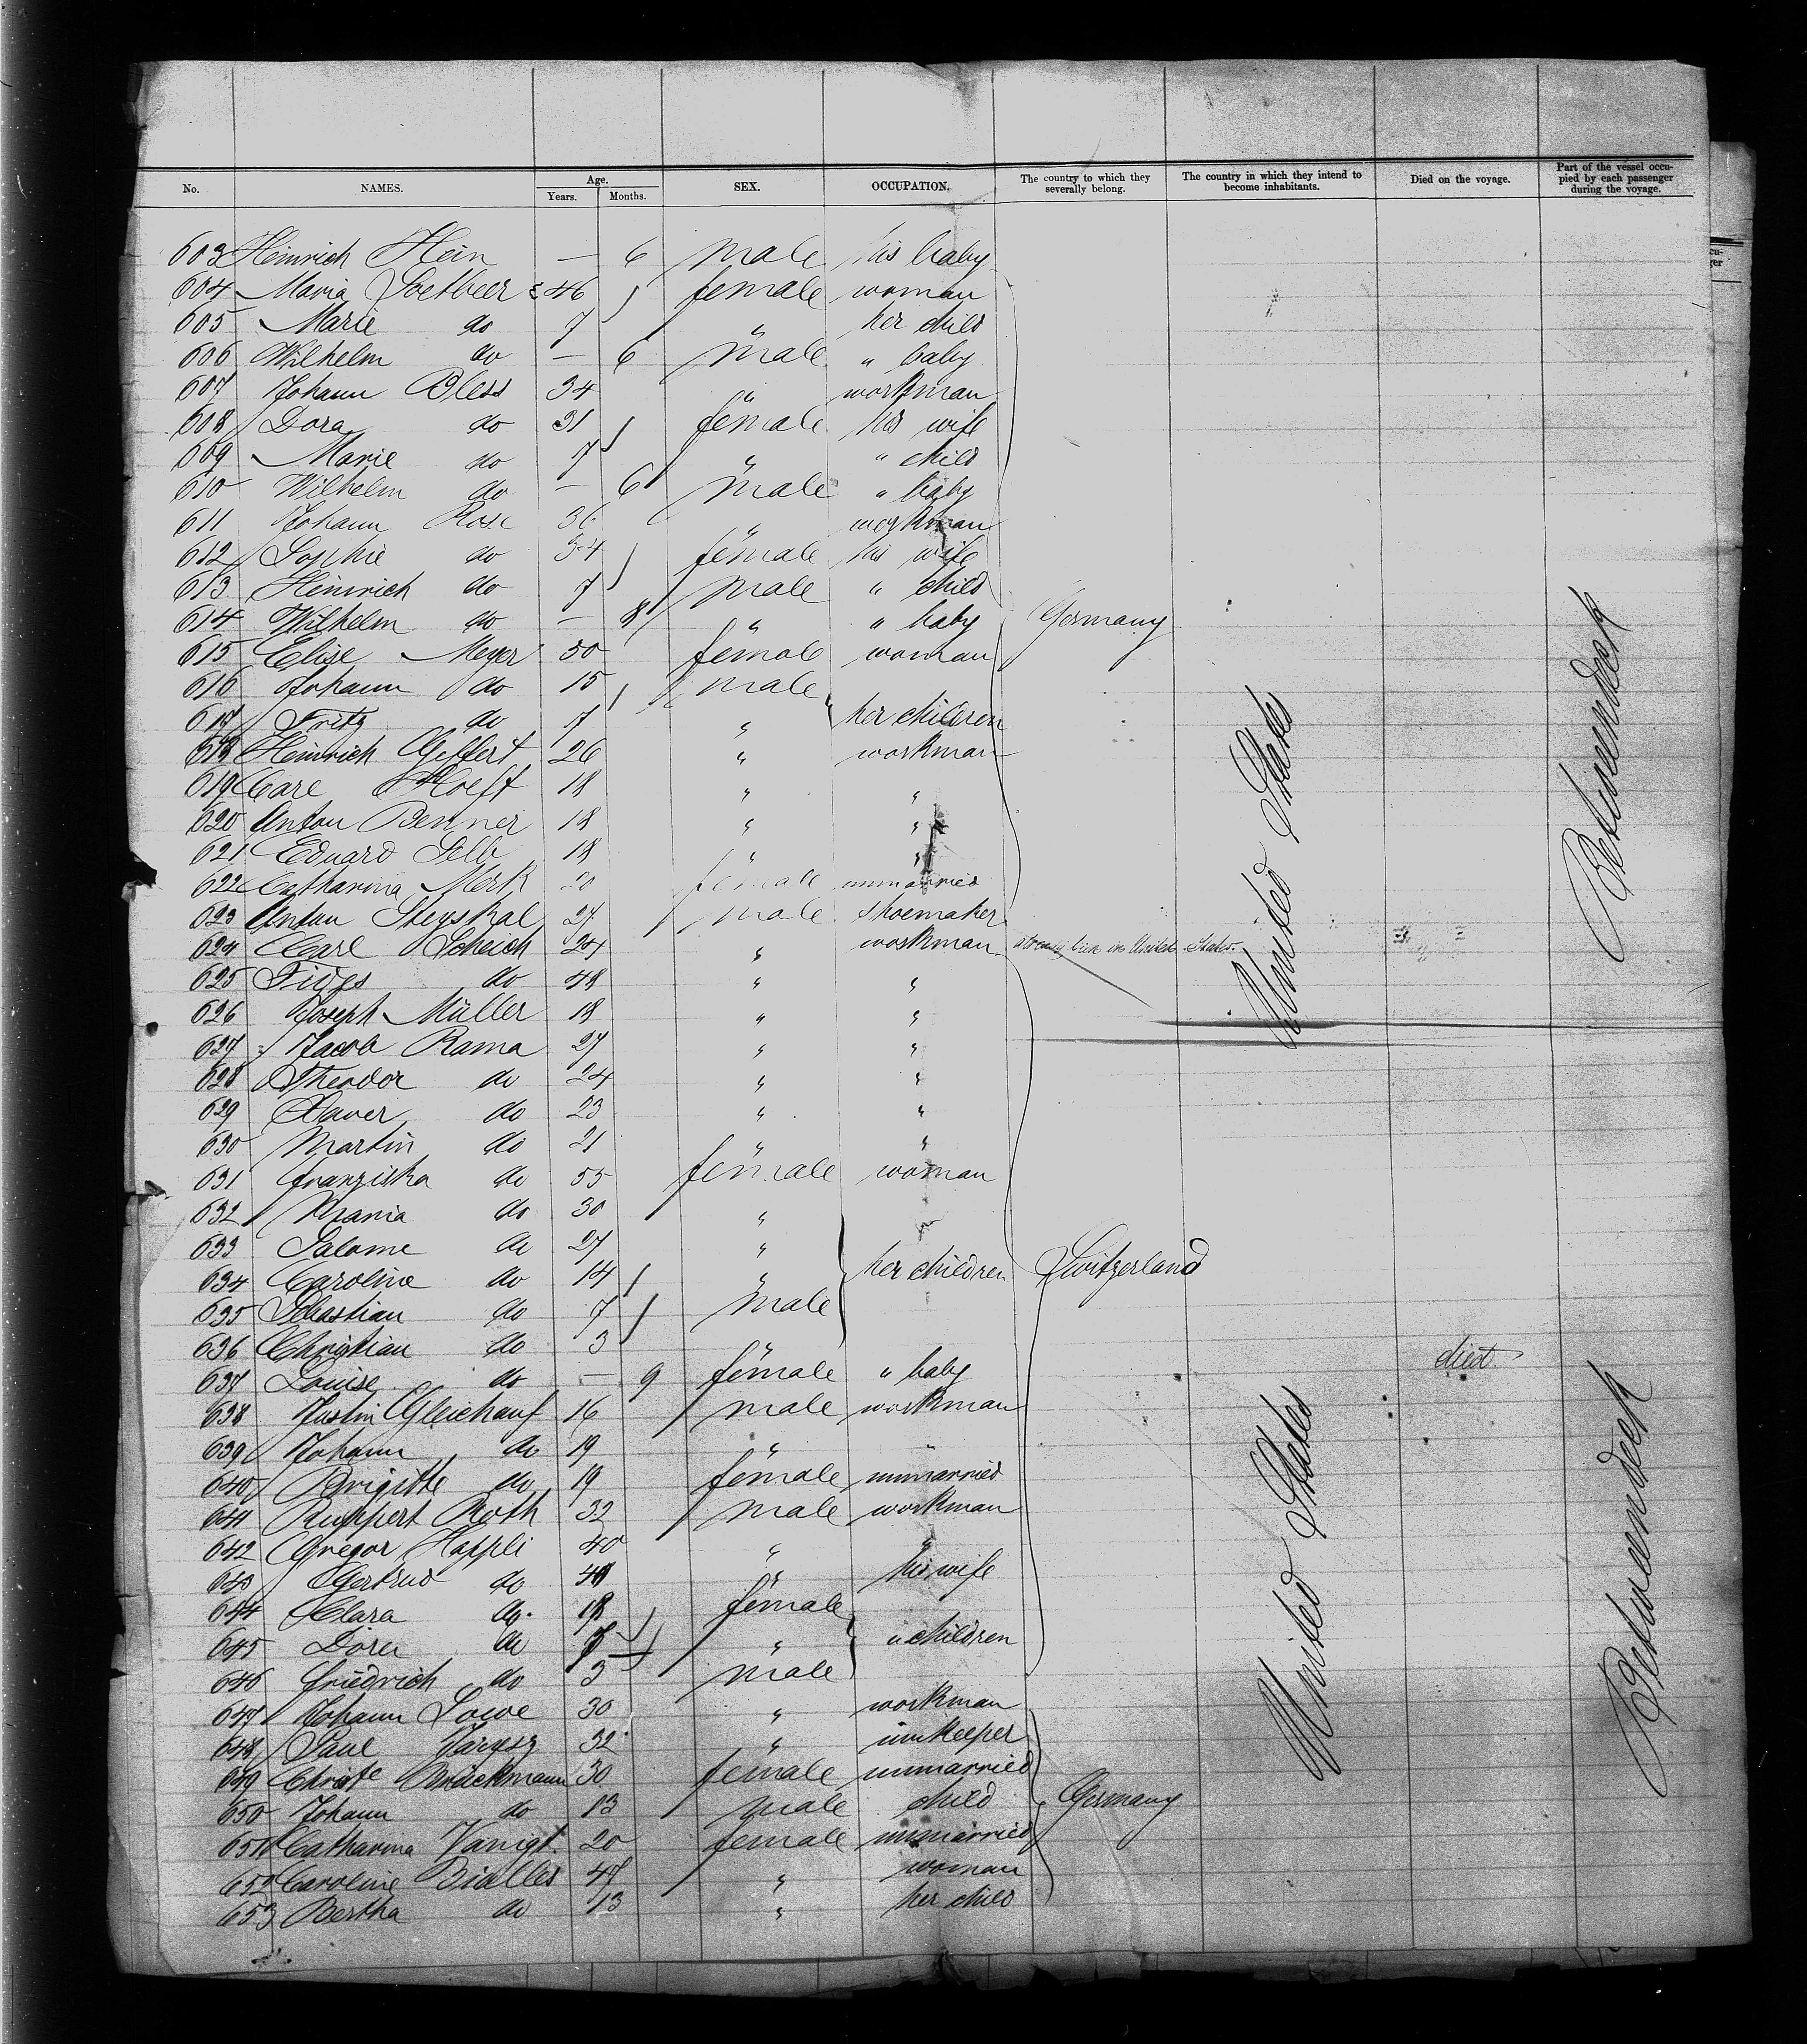 No. NAMES. Age. Years. Months. SEX. OCCUPATION. The country to which they severally belong. The country in which they intend to become inhabitants. Died on the voyage. Part of the vessel occupied by each passenger during the voyage.
603 Heinrich Hein — 6 male his baby
604 Maria Soetbeer 46 female woman
605 Marie do 7 " her child
606 Wilhelm do — 6 male " baby
607 Johann Bless 34 " workman
608 Dora do 31 female his wife
609 Marie do 7 " " child
610 Wilhelm do — 6 male " baby
611 Johann Rose 36 " workman
612 Sophie do 34 female his wife
613 Heinrich do 7 male " child
614 Wilhelm do — 8 " " baby Germany
615 Elise Meyer 50 female woman
616 Johann do 15 male
617 Fritz do 7 " her children
618 Heinrich Geffert 26 " workman
619 Carl Hoeft 18 " "
620 Anton Benner 18 " "
621 Eduard Selb 18 " "
622 Catharina Merk 20 female unmarried
623 Anton Steyskal 27 male shoemaker
624 Carl Scheich 24 " workman already been in United States.
625 Fides do 48 " "
626 Joseph Müller 18 " "
627 Jacob Rama 27 " "
628 Theodor do 24 " "
629 Xaver do 23 " "
630 Martin do 21 " "
631 Franziska do 55 female woman
632 Maria do 30 "
633 Salome do 27 "
634 Caroline do 14 " her children Switzerland
635 Sebastian do 7 male
636 Christian do 3 "
637 Louise do — 9 female " baby died
638 Justin Gleichauf 16 male workman
639 Johann do 19 " "
640 Brigitte do 19 female unmarried
641 Ruppert Roth 32 male workman
642 Gregor Happli 40 " "
643 Gertrud do 48 " his wife
644 Clara do 18 female
645 Dora do 7 " " children
646 Friedrich do 3 male
647 Johann Lowe 30 " workman
648 Paul 32 " innkeeper
649 Christe Brückmann 30 female unmarried
650 Johann do 13 male child Germany
651 Catharina 20 female unmarried
652 Caroline Bialles 47 " woman
653 Bertha do 13 " her child
United States
Betweendeck
United States
Betweendeck